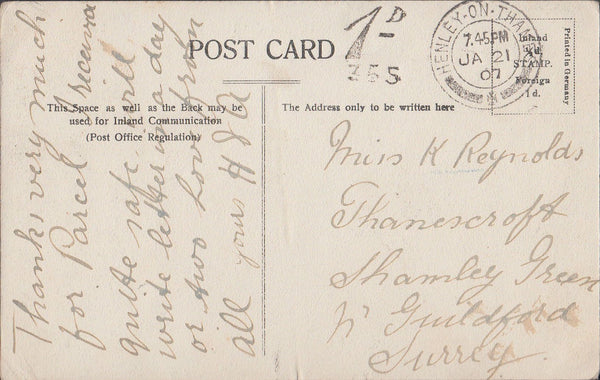 POST CARD
1D
355
HENLEY-ON-THAMES
7.45PM
JA 21
07
Inland
½d.
STAMP.
Foreign
1d.
Printed in Germany
This Space as well as the Back may be
used for Inland Communication
(Post Office Regulation)
The Address only to be written here
Thanks very much
for Parcel received
quite safe will
write letter in a day
or two Love from
all yours
Miss K Reynolds
Thanescroft
Shamley Green
Nr Guildford
Surrey.